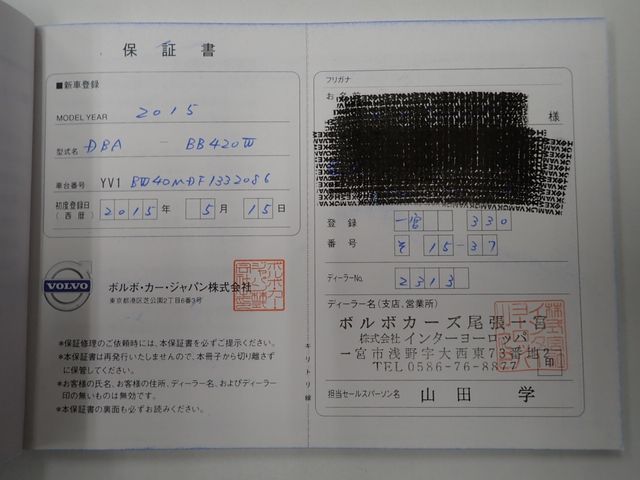 保証書
■新車登録
MODEL YEAR 2015
型式名 DBA - BB420W
車台番号 YV1 BW40MDF1332086
初度登録日(西暦) 2015年 5月 15日
VOLVO
ボルボ・カー・ジャパン株式会社
東京都港区芝公園2丁目6番3号
*保証修理のご依頼時には、本保証書を必ずご提示ください。
*本保証書は再発行いたしませんので、本冊子から切り離さず
に保管してください。
*お客様の氏名、お客様の住所、ディーラー名、およびディーラー
印の無いものは無効です。
*本保証書の裏面も必ずお読みください。
キリトリ線
フリガナ
お名前
様
登録 一宮 330
番号 そ 15-37
ディーラーNo. 2313
ディーラー名(支店、営業所)
ボルボカーズ尾張一宮
株式会社 インターヨーロッパ
一宮市浅野字大西東73番地2
TEL 0586-76-8877
印
担当セールスパーソン名 山田 学